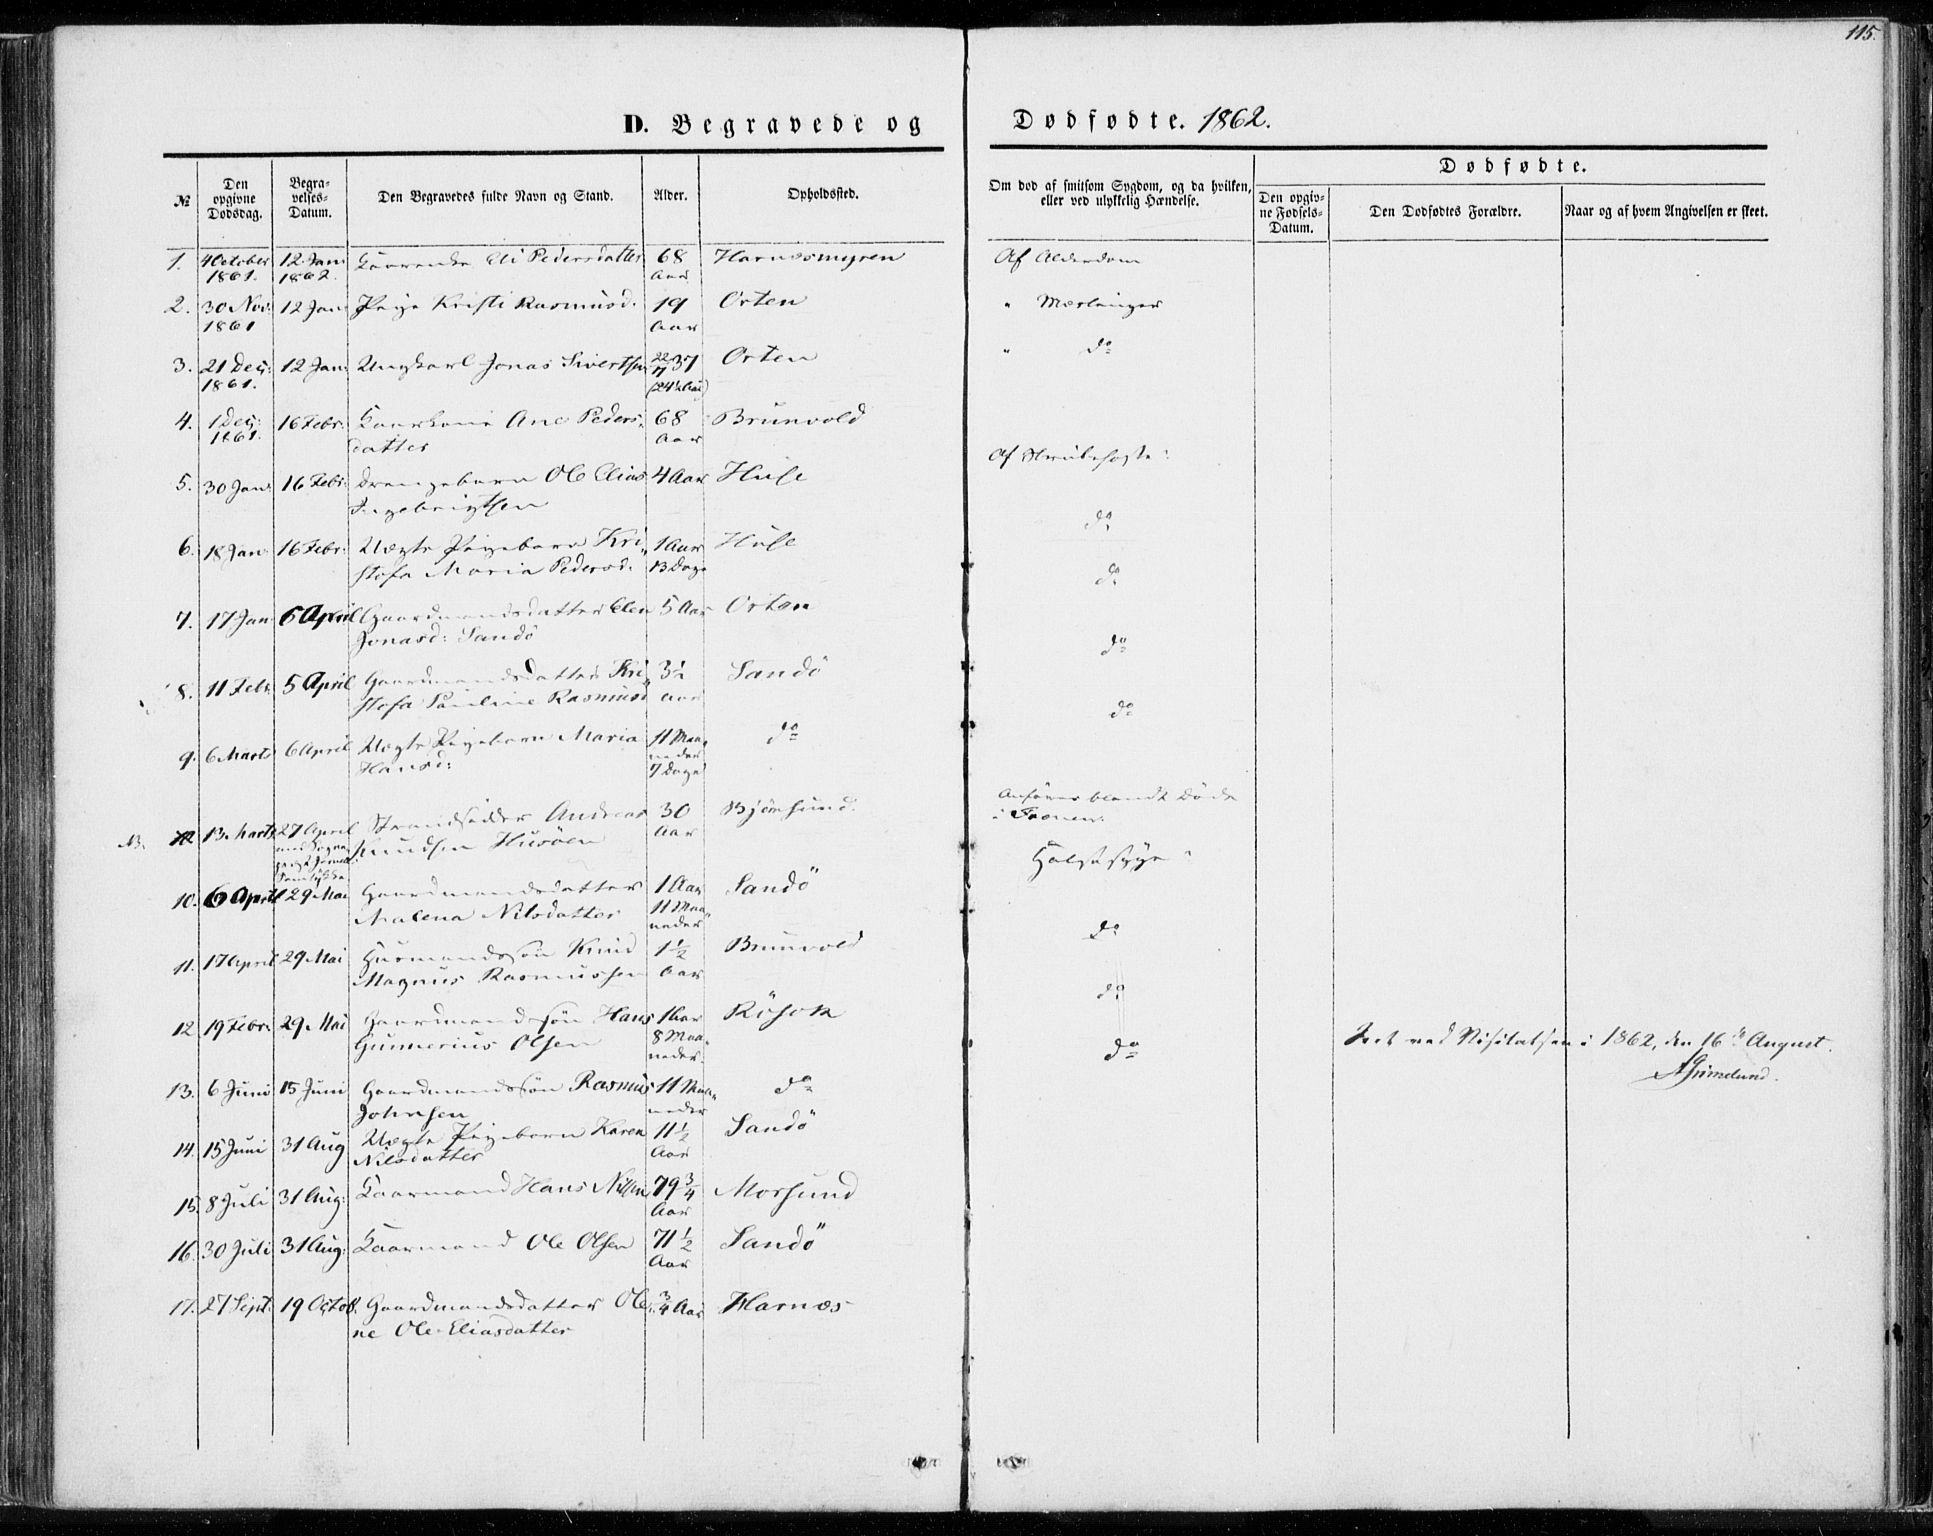 115.
D. Begravede og Dødfødte. 1862.
№
Den opgivne Dødsdag.
Begravelses-Datum.
Den Begravedes fulde Navn og Stand.
Alder.
Opholdssted.
Om død af smitsom Sygdom, og da hvilken, eller ved ulykkelig Hændelse.
Dødfødte.
Den opgivne Fødsels-Datum.
Den Dødfødtes Forældre.
Naar og af hvem Angivelsen er skeet.
1. 4 October 12 Jan: Eli Pedersdatter 68 Harnæsmyren Af Alderdom
1861. 1862. Aar
2. 30 Nov: 12 Jan: Pige Kristi Rasmusd: 19 Orten " Mæslinger
1861 Aar
3. 21 Dec: 12 Jan: Ungkarl Jonas Sivertsen Orten " do
1861. (24½ Aar)
4. 1 Dec: 16 Febr: Kaarkone Ane Peders- 68 Brunvold
1861. datter Aar
5. 30 Jan: 16 Febr: Drengebarn Ole Elias 4 Aar Huse Af Strubehoste
Ingebrigtsen
6. 18 Jan: 16 Febr: Uægte Pigebarn Kri- 1 Aar Huse do
stofa Maria Pedersd: 13 Dage
7. 17 Jan 6 April Gaardmandsdatter Elen 5 Aar Orten do
Jonasd: Sandö
8. 11 Febr: 5 April Gaardmandsdatter Kri- 3½ Sandö do
stofa Pauline Rasmusd aar
9. 6 Marts 6 April Uægte Pigebarn Maria 11 Maa- do do
Hansd: neder
7 Dage
NB. 13. Marts 27 April Strandsidder Andreas 30 Bjørnsund. Anföres blandt Döde
Knudsen Husöen Aar i Fræne
10. 6 April 29 Mai Gaardmandsdatter 1 Aar Sandö Halssyge
Malena Nilsdatter 11 Maa-
neder
11. 17 April 29 Mai Husmandssön Knud 1½ Brunvold do
Magnus Rasmussen Aar
12 19 Febr: 29 Mai Gaardmandssön Hans 1 Aar Rösok do
Gunnerius Olsen 8 Maa-
neder
13. 6 Juni 15 Juni Gaardmandssön Rasmus 11 Maa- do do
Johnsen neder
Seet ved Visitatsen i 1862, den 16de August.
Grimelund.
14. 15 Juni 31 Aug Uægte Pigebarn Karen 11½ Sandö
Nilsdatter Aar
15. 8 Juli 31 Aug: Kaarmand Hans Nilsen 79¾ Morsund
Aar
16. 30 Juli 31 Aug: Kaarmand Ole Olsen 71½ Sandö
Aar
17. 27 Sept: 19 Octob. Gaardmandsdatter Ole- ¾ Aar Harnæs
ne Ole-Eliasdatter